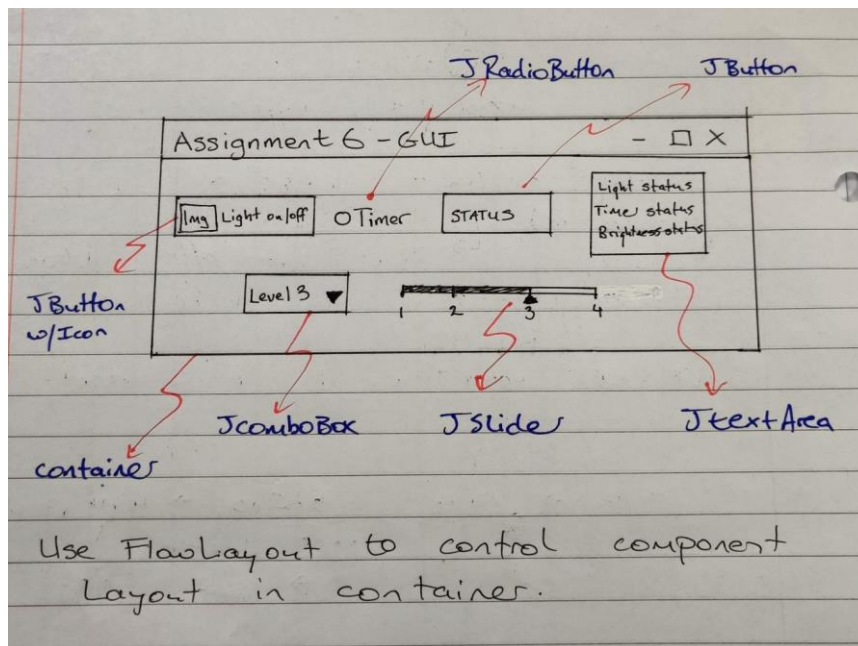 JRadioButton JButton
Assignment 6 - GUI - □ X
Img Light on/off O Timer STATUS
Light status
Time status
Brightness status
JButton
w/Icon
Level 3 ▼
1 2 3 4
JcomboBox JSlider JtextArea
container
Use FlowLayout to control component
Layout in container.